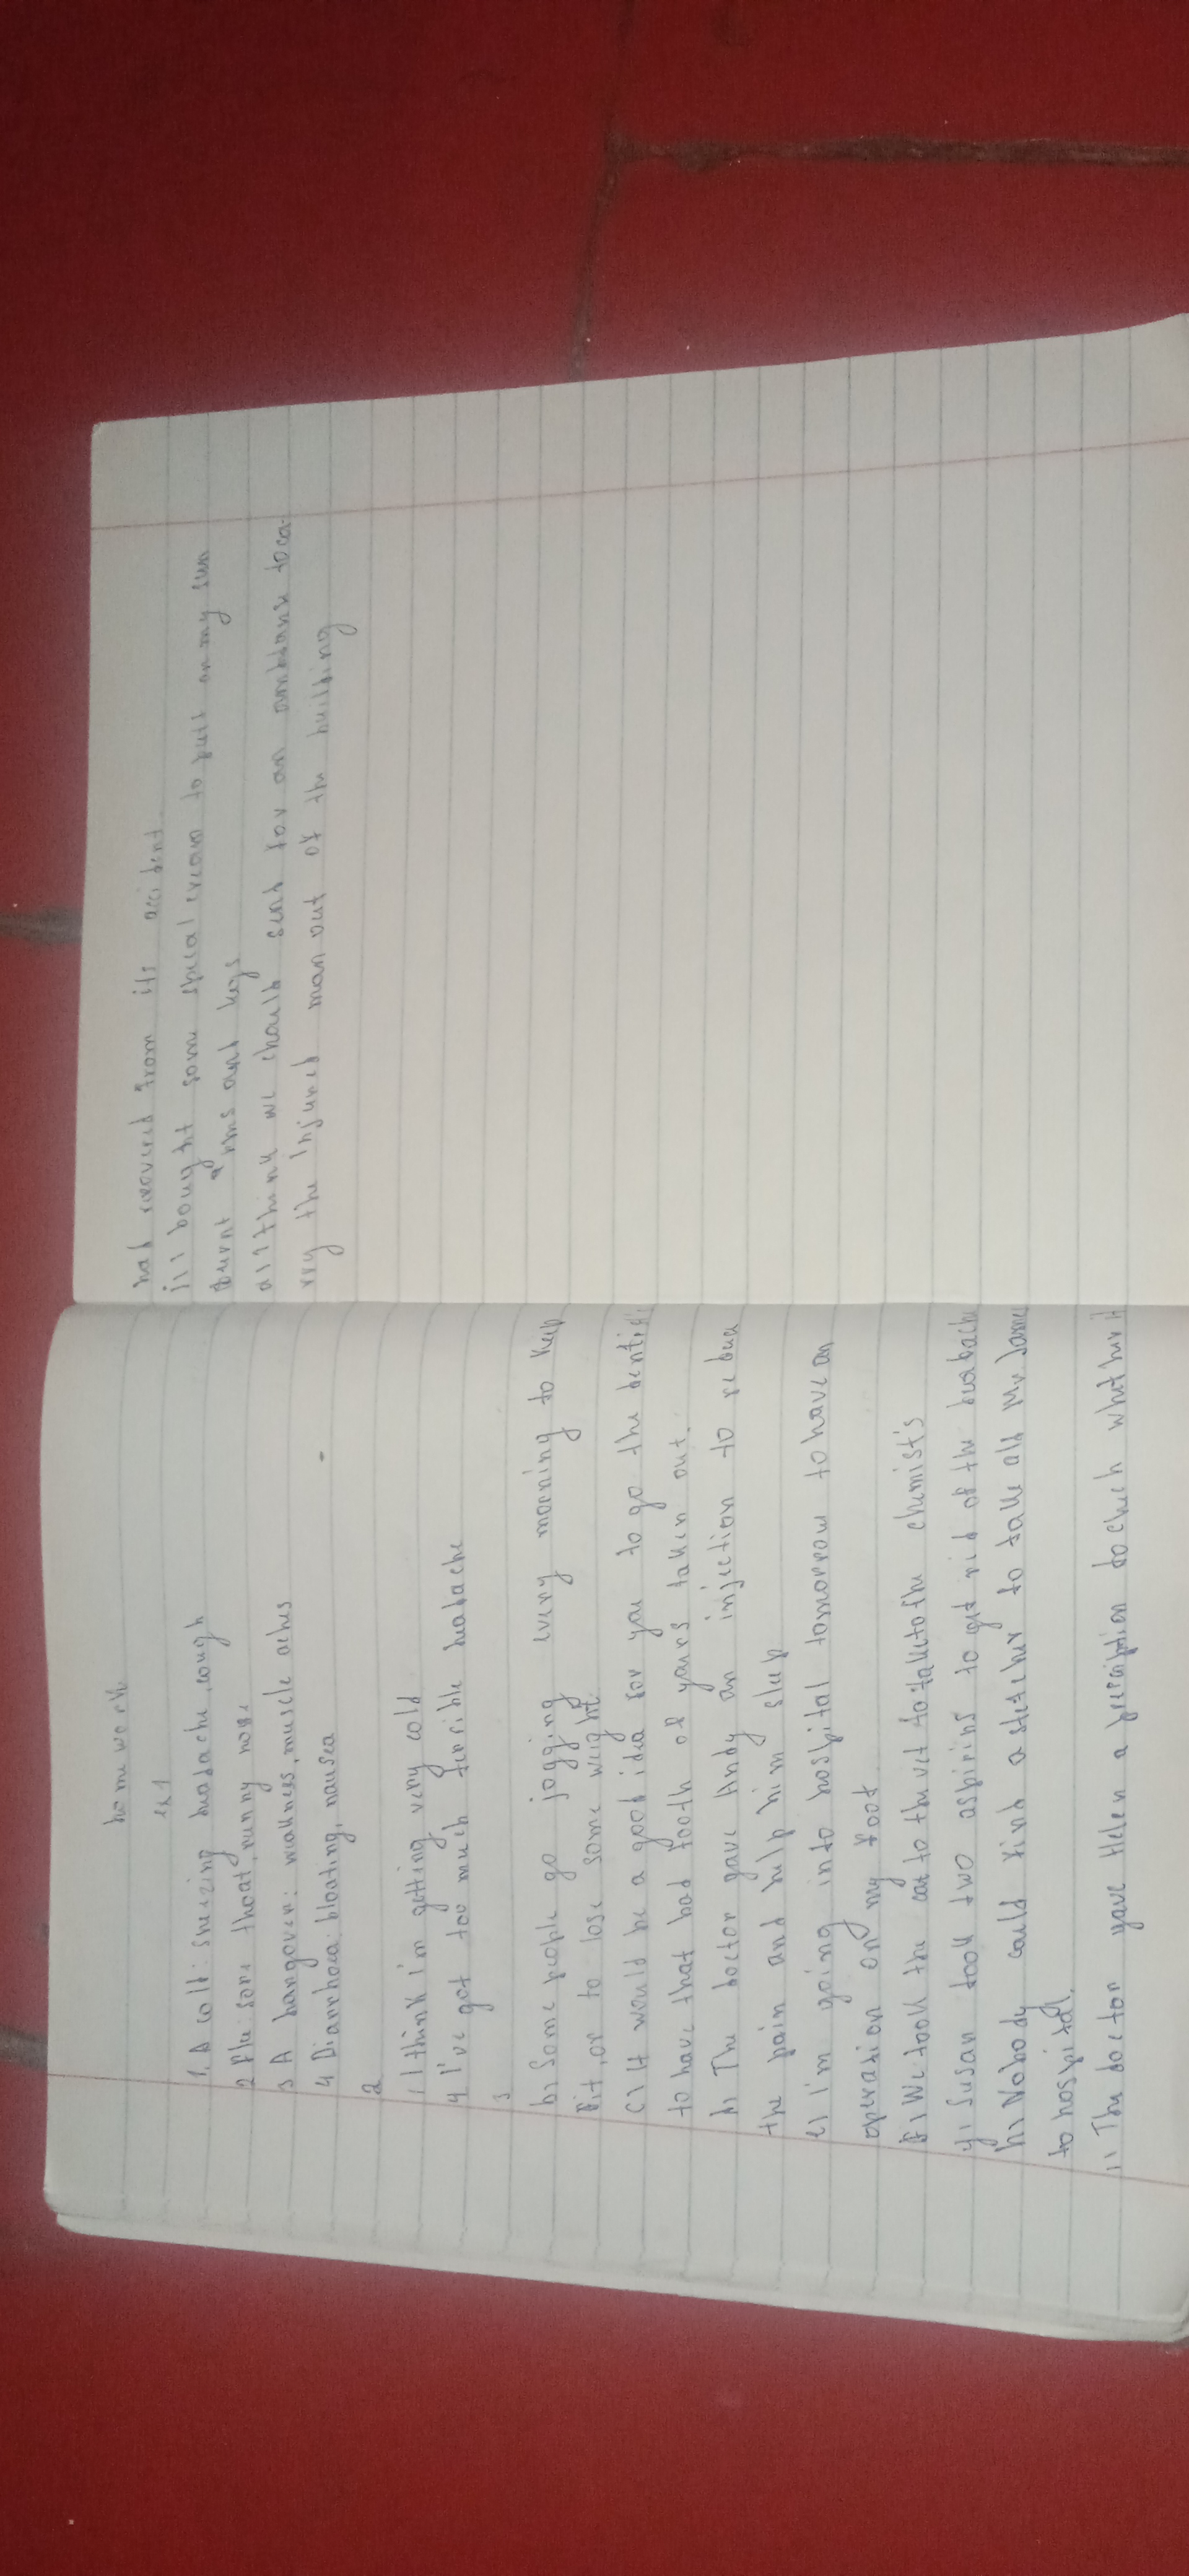 home work
ex1
1. A cold: sneezing headache, cough
2 Flu: sore thoat, runny nose
3 A hangover: weakness, muscle aches
4 Diarrhoea: bloating, nausea
2
1 I think im getting very cold
4 I've got too much terrible headache
3
b) Some people go jogging every morning to keep
fit, or to lose some weight.
c) It would be a good idea for you to go the dentist
to have that bad tooth of yours taken out.
d) The doctor gave Andy an injection to reduce
the pain and help him sleep
e) I'm going into hospital tomorrow to have an
operation on my foot
f) We took the cat to the vet to take to the chemist's
g) Susan took two aspirins to get rid of the headache
h) Nobody could find a stretcher to take old Mr. James
to hospital.
i) The doctor gave Helen a prescription to check whether it
had recovered from its accident
j) I bought some special cream to put on my sun
burnt arms and legs
a) I think we should send for an ambulance to ca-
rry the injured man out of the building